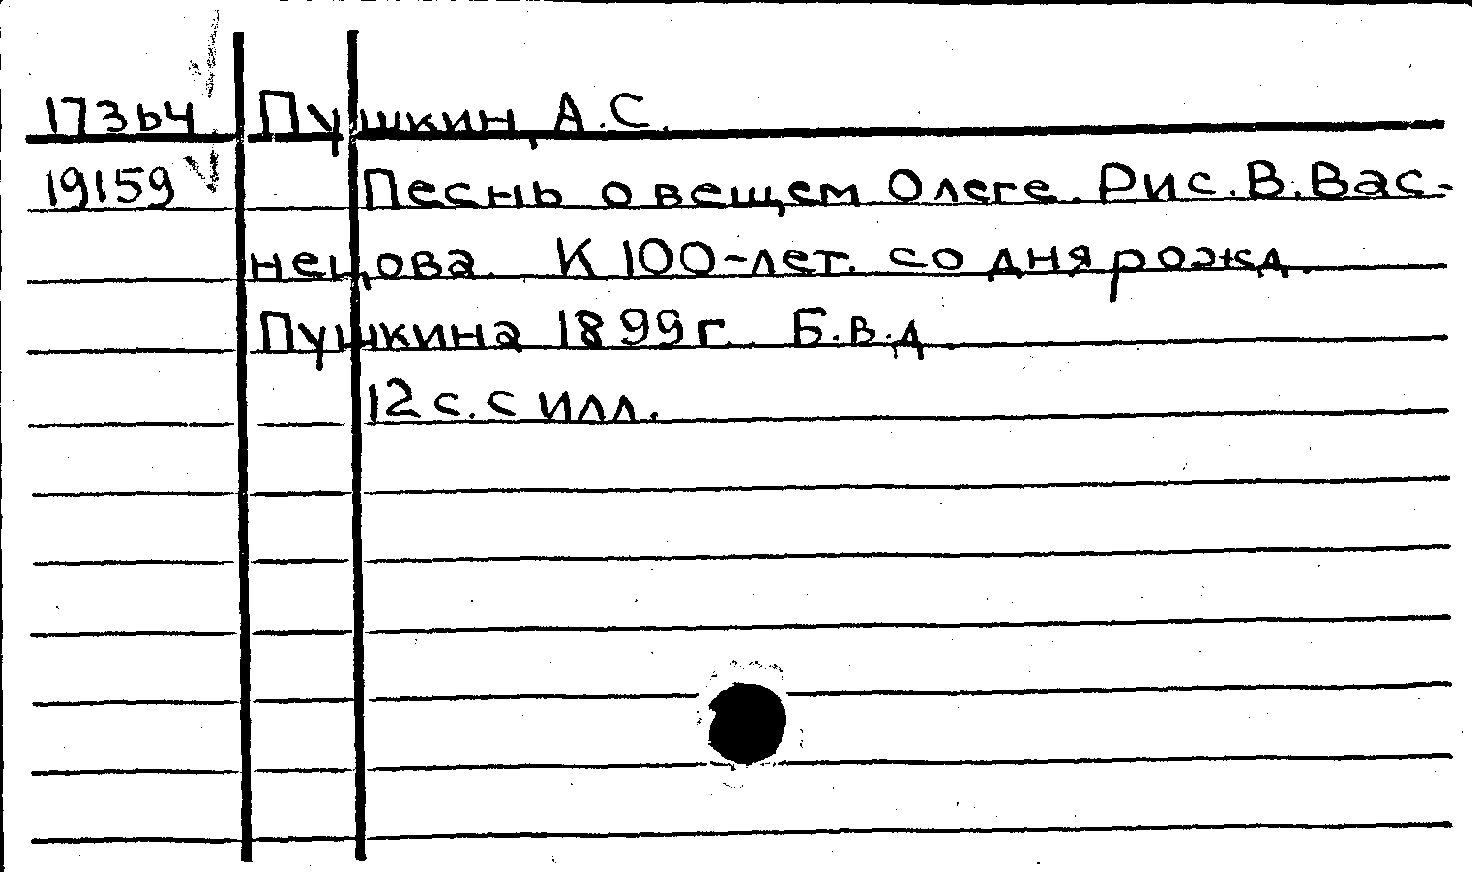 17364 Пушкин, А.С.
19159 Песнь о вещем Олеге. Рис. В. Вас-
нецова. К 100-лет. со дня рожд.
Пушкина 1899 г. Б.в.д.
12 с. с илл.